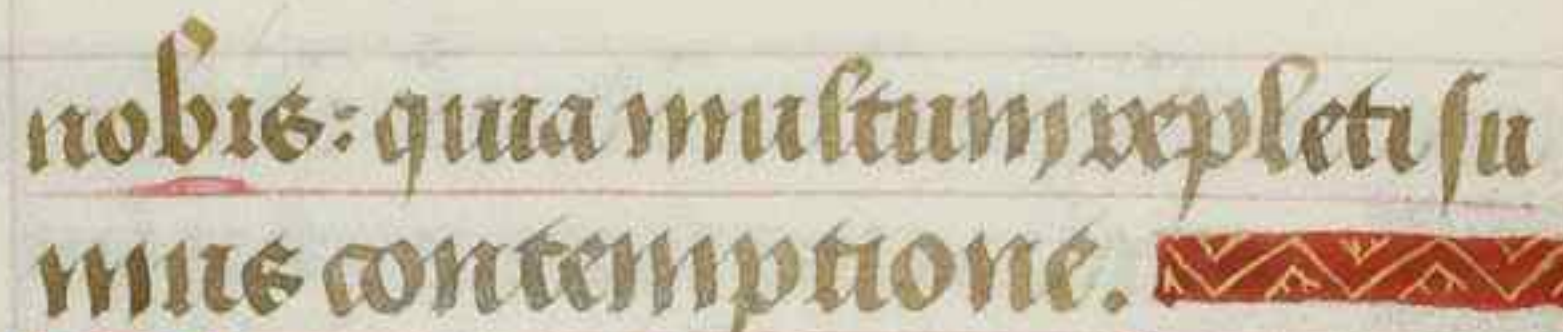 nobis: quia multum repleti su
mus contemptione.